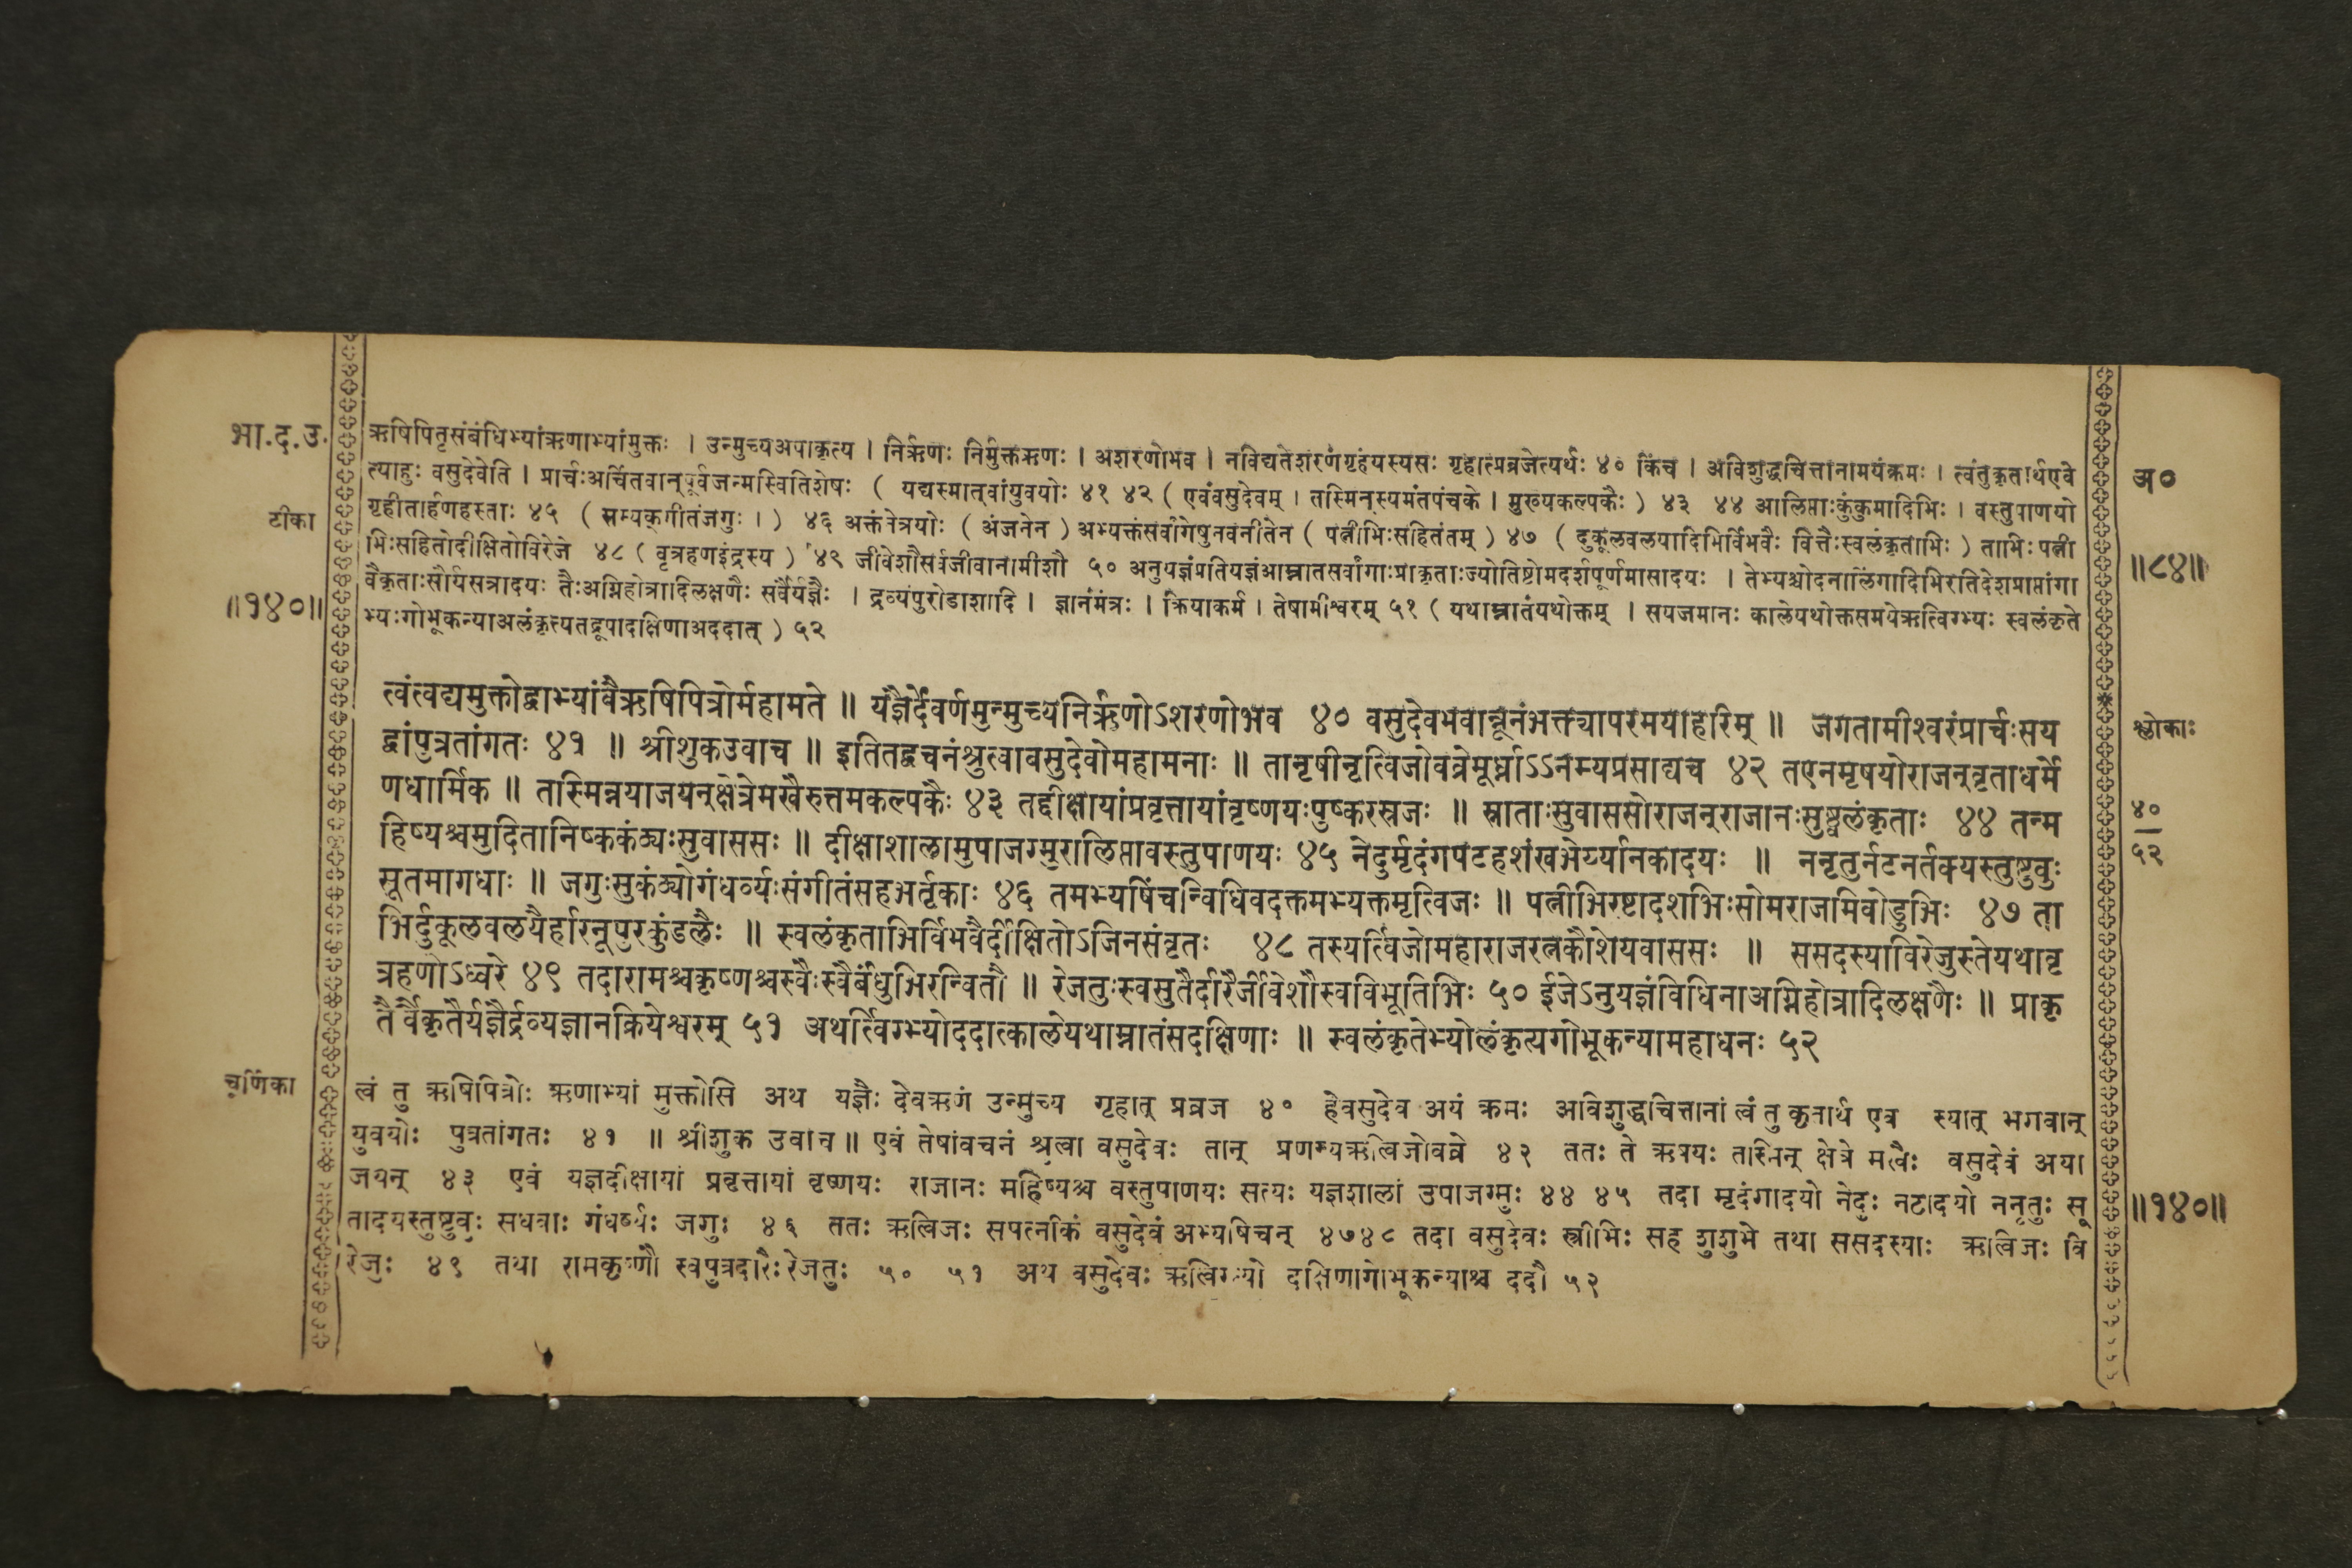 भा.द.उ.
टीका
॥१४०॥
ऋषिपितृसंबंधिभ्यांऋणाभ्यांमुक्तः । उन्मुच्यअपाकृत्य । निर्ऋणः निर्मुक्तऋणः । अशरणोभव । नविद्यतेशरणंगृहंयस्यसः गृहात्प्रव्रजेत्यर्थः ४० किंच । अविशुद्धचित्तानामयंक्रमः । त्वंतुकृतार्थएवे
त्याहुः वसुदेवेति । प्रार्चःअर्चितवान्पूर्वजन्मस्वितिशेषः ( यद्यस्मात्वांयुवयोः ४१ ४२ ( एवंवसुदेवम् । तस्मिन्स्यमंतपंचके । मुख्यकल्पकैः ) ४३ ४४ आलिप्ताःकुंकुमादिभिः । वस्तुपाणयो
गृहीतार्हणहस्ताः ४५ ( सम्यक्गीतंजगुः । ) ४६ अक्तंनेत्रयोः ( अंजनेन ) अभ्यक्तंसर्वांगेषुनवनीतेन ( पत्नीभिःसहितंतम् ) ४७ ( दुकूलवलयादिभिर्विभवैः वित्तैःस्वलंकृताभिः ) ताभिः पत्नी
भिःसहितोदीक्षितोविरेजे ४८ ( वृत्रहणइंद्रस्य ) ४९ जीवेशौसर्वजीवानामीशौ ५० अनुयज्ञंप्रतियज्ञंआम्नातसर्वांगाःप्राकृताःज्योतिष्टोमदर्शपूर्णमासादयः । तेभ्यश्चोदनालिंगादिभिरतिदेशप्राप्तांगा
वैकृताःसौर्यसत्रादयः तैःअग्निहोत्रादिलक्षणैः सर्वैर्यज्ञैः । द्रव्यंपुरोडाशादि । ज्ञानंमंत्रः । क्रियाकर्म । तेषामीश्वरम् ५१ ( यथाम्नातंयथोक्तम् । सयजमानः कालेयथोक्तसमयेऋत्विग्भ्यः स्वलंकृते
भ्यःगोभूकन्याअलंकृत्यतद्रूपादक्षिणाअददात् ) ५२
अ०
॥८४॥
त्वंत्वद्यमुक्तोद्वाभ्यांवैऋषिपित्रोर्महामते ॥ यज्ञैर्देवर्णमुन्मुच्यनिर्ऋणोऽशरणोभव ४० वसुदेवभवान्नूनंभक्त्यापरमयाहरिम् ॥ जगतामीश्वरंप्रार्चःसय
द्वांपुत्रतांगतः ४१ ॥ श्रीशुकउवाच ॥ इतितद्वचनंश्रुत्वावसुदेवोमहामनाः ॥ तानृषीनृत्विजोवव्रेमूर्ध्नाऽऽनम्यप्रसाद्यच ४२ तएनमृषयोराजन्वृताधर्मे
णधार्मिक ॥ तस्मिन्नयाजयन्क्षेत्रेमखैरुत्तमकल्पकैः ४३ तद्दीक्षायांप्रवृत्तायांवृष्णयःपुष्करस्रजः ॥ स्नाताःसुवाससोराजन्राजानःसुष्ठ्वलंकृताः ४४ तन्म
हिष्यश्चमुदितानिष्ककंठ्यःसुवाससः ॥ दीक्षाशालामुपाजग्मुरालिप्तावस्तुपाणयः ४५ नेदुर्मृदंगपटहशंखभेर्य्यानकादयः ॥ ननृतुर्नटनर्तक्यस्तुष्टुवुः
सूतमागधाः ॥ जगुःसुकंठ्योगंधर्व्यःसंगीतंसहभर्तृकाः ४६ तमभ्यषिंचन्विधिवदक्तमभ्यक्तमृत्विजः ॥ पत्नीभिरष्टादशभिःसोमराजमिवोडुभिः ४७ ता
भिर्दुकूलवलयैर्हारनूपुरकुंडलैः ॥ स्वलंकृताभिर्विभवैर्दीक्षितोऽजिनसंवृतः ४८ तस्यर्त्विजोमहाराजरत्नकौशेयवाससः ॥ ससदस्याविरेजुस्तेयथावृ
त्रहणोऽध्वरे ४९ तदारामश्चकृष्णश्चस्वैःस्वैर्बंधुभिरन्वितौ ॥ रेजतुःस्वसुतैर्दारैर्जीवेशौस्वविभूतिभिः ५० ईजेऽनुयज्ञंविधिनाअग्निहोत्रादिलक्षणैः ॥ प्राकृ
तैर्वैकृतैर्यज्ञैर्द्रव्यज्ञानक्रियेश्वरम् ५१ अथर्त्विग्भ्योददात्कालेयथाम्नातंसदक्षिणाः ॥ स्वलंकृतेभ्योलंकृत्यगोभूकन्यामहाधनः ५२
श्लोकाः
४०
५२
चूर्णिका
त्वं तु ऋषिपित्रोः ऋणाभ्यां मुक्तोसि अथ यज्ञैः देवऋणं उन्मुच्य गृहात् प्रव्रज ४० हेवसुदेव अयं क्रमः अविशुद्धचित्तानां त्वं तु कृतार्थ एव स्यात् भगवान्
युवयोः पुत्रतांगतः ४१ ॥ श्रीशुक उवाच ॥ एवं तेषांवचनं श्रुत्वा वसुदेवः तान् प्रणम्यऋत्विजोवव्रे ४२ ततः ते ऋषयः तस्मिन् क्षेत्रे मखैः वसुदेवं अया
जयन् ४३ एवं यज्ञदीक्षायां प्रवृत्तायां वृष्णयः राजानः महिष्यश्च वस्तुपाणयः सत्यः यज्ञशालां उपाजग्मुः ४४ ४५ तदा मृदंगादयो नेदुः नटादयो ननृतुः सू
तादयस्तुष्टुवुः सधवाः गंधर्व्यः जगुः ४६ ततः ऋत्विजः सपत्नीकं वसुदेवं अभ्यषिंचन् ४७४८ तदा वसुदेवः स्त्रीभिः सह शुशुभे तथा ससदस्याः ऋत्विजः वि
रेजुः ४९ तथा रामकृष्णौ स्वपुत्रदारैः रेजतुः ५० ५१ अथ वसुदेवः ऋत्विग्भ्यो दक्षिणागोभूकन्याश्च ददौ ५२
॥१४०॥